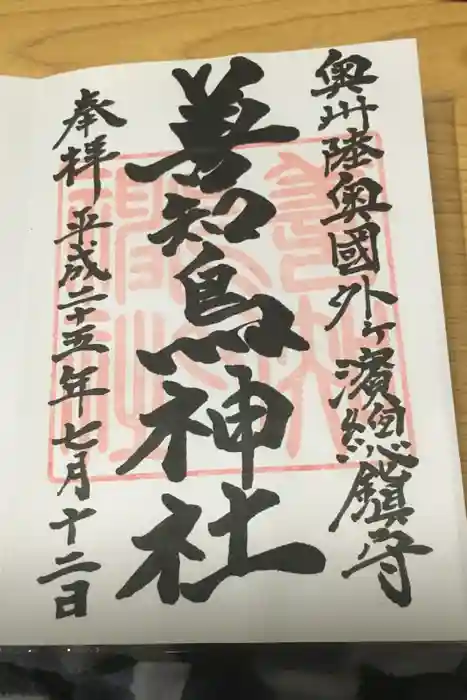 奥州陸奥國外ヶ濱總鎮守
善知鳥神社
奉拝 平成二十五年七月十二日